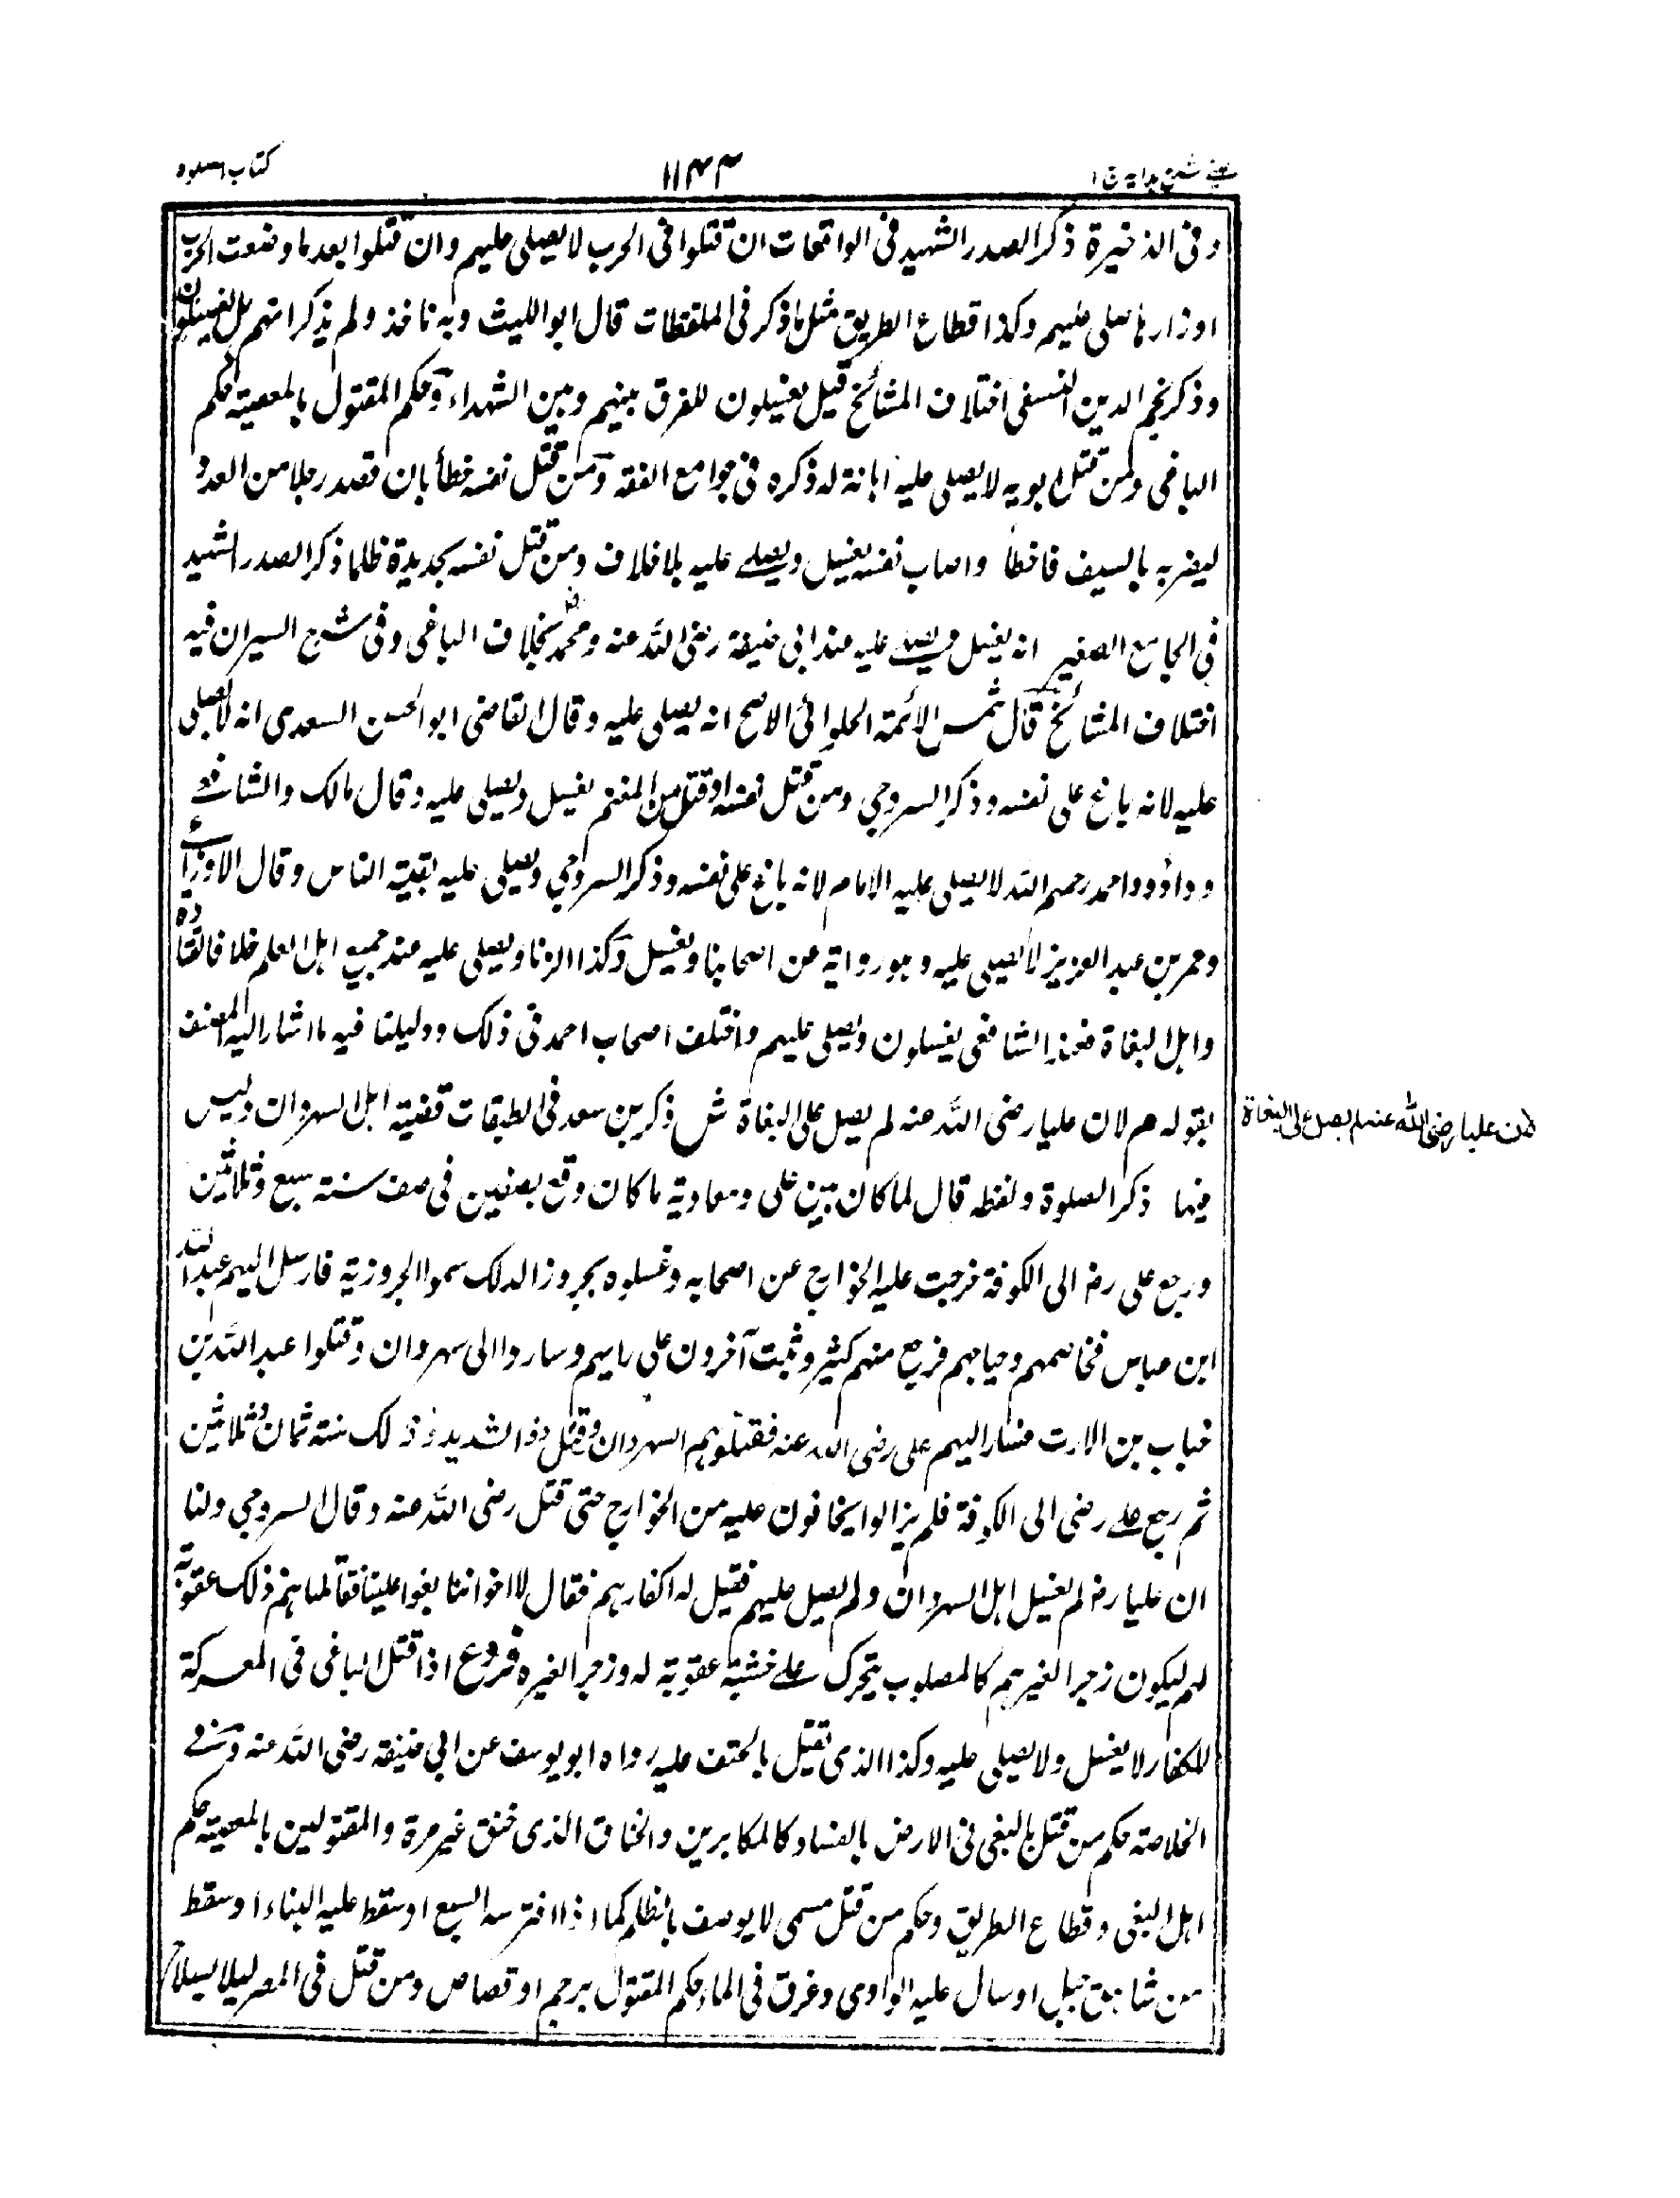 عینی شرح ہدایہ ج ۱
۱۱۴۴
کتاب الصلوة
وفی الذخیرة ذکر الصدر الشہید فی الواقعات ان قتلوا فی الحرب لا یصلی علیہم وان قتلوا بعد ما وضعت الحرب
اوزارہا صلی علیہم وکذا قطاع الطریق مثل ما ذکر فی الملتقطات قال ابو اللیث وبہ ناخذ ولم یذکر انہم ہل یغسلون
وذکر نجم الدین النسفی اختلاف المشائخ قیل یغسلون للفرق بینہم وبین الشہداء وحکم المقتول بالمعصیۃ حکم
الباغی ولمن قتل ابویہ لا یصلی علیہ اہانۃ لہ ذکرہ فی جوامع الفقہ ومن قتل نفسہ خطأ بان قصد رجلا من العدو
لیضربہ بالسیف فاخطأ واصاب نفسہ یغسل ویصلے علیہ بلا خلاف ومن قتل نفسہ بحدیدة ظلما ذکر الصدر الشہید
فی الجامع الصغیر انہ یغسل ویصلے علیہ عند ابی حنیفۃ رضی اللہ عنہ ومحمد بخلاف الباغی وفی شرح السیر ان فیہ
اختلاف المشائخ قال شمس الائمۃ الحلوائی الاصح انہ یصلی علیہ وقال القاضی ابو الحسن السعدی انہ لا یصلی
علیہ لانہ باغ علی نفسہ وذکر السروجی ومن قتل نفسہ او قتل من المغنم یغسل ویصلی علیہ وقال مالک والشافعے
وداؤد واحمد رحمہم اللہ لا یصلی علیہ الامام لانہ باغ علی نفسہ وذکر السروجی ویصلی علیہ بقیۃ الناس وقال الاوزاعے
وعمر بن عبد العزیز لا یصلی علیہ وہو روایۃ عن اصحابنا ویغسل وکذا الزنا ویصلی علیہ عند جمیع اہل العلم خلافا لقتادہ
واہل البغاة فعند الشافعی یغسلون ویصلی علیہم واختلف اصحاب احمد فی ذلک ودلیلنا فیہ ما اشار الیہ المصنف
بقولہ م لان علیا رضی اللہ عنہ لم یصل علی البغاة ش ذکر بن سعد فی الطبقات قضیۃ اہل النہروان ولیس
لان علیا رضی اللہ عنہ لم یصل علی البغاة
فیہا ذکر الصلوة ولفظہ قال لما کان بین علی ومعاویۃ ما کان وقع بصفین فی صف سنۃ سبع وثلاثین
ورجع علی رض الی الکوفۃ خرجت علیہ الخوارج عن اصحابہ وغسلوہ بجروز الدلک سموا الجروزیۃ فارسل الیہم عبد اللہ
ابن عباس فخاصمہم وحیاجہم فرجع منہم کثیر وثبت آخرون علی رایہم وساروا الی نہروان وقتلوا عبد اللہ بن
خباب بن الارت فسار الیہم علی رضی اللہ عنہ فقتلوہم النہروان وقتل ذو الشدید وذلک سنۃ ثمان وثلاثین
ثم رجع علے رضی الی الکوفۃ فلم یزالوا یخافون علیہ من الخوارج حتی قتل رضی اللہ عنہ وقال السروجی ولنا
ان علیا رض لم یغسل اہل النہروان ولم یصل علیہم فقیل لہ اکفار ہم فقال لا اخواننا بغوا علینا فقاتلناہم ذلک عقوبۃ
لہم لیکون زجرا لغیرہم کالمصلوب یترک علے خشبۃ عقوبۃ لہ وزجرا لغیرہ فروع اذا قتل الباغی فی المعرکۃ
للکفار لا یغسل ولا یصلی علیہ وکذا الذی یقتل بالحتف علیہ رواہ ابو یوسف عن ابی حنیفۃ رضی اللہ عنہ وفے
الخلاصۃ حکم من قتل بالبغی فی الارض بالفساد کالمکابرین والخناق الذی خنق غیر مرة والمقتولین بالمعصیۃ حکم
اہل البغی وقطاع الطریق وحکم من قتل مسمی لا یوصف بالظلم کما اذا افترسہ السبع او سقط علیہ البناء او سقط
من شاہق جبل او سال علیہ الوادی وغرق فی الماء وحکم المقتول برجم او قصاص ومن قتل فی المصر لیلا بسلاح